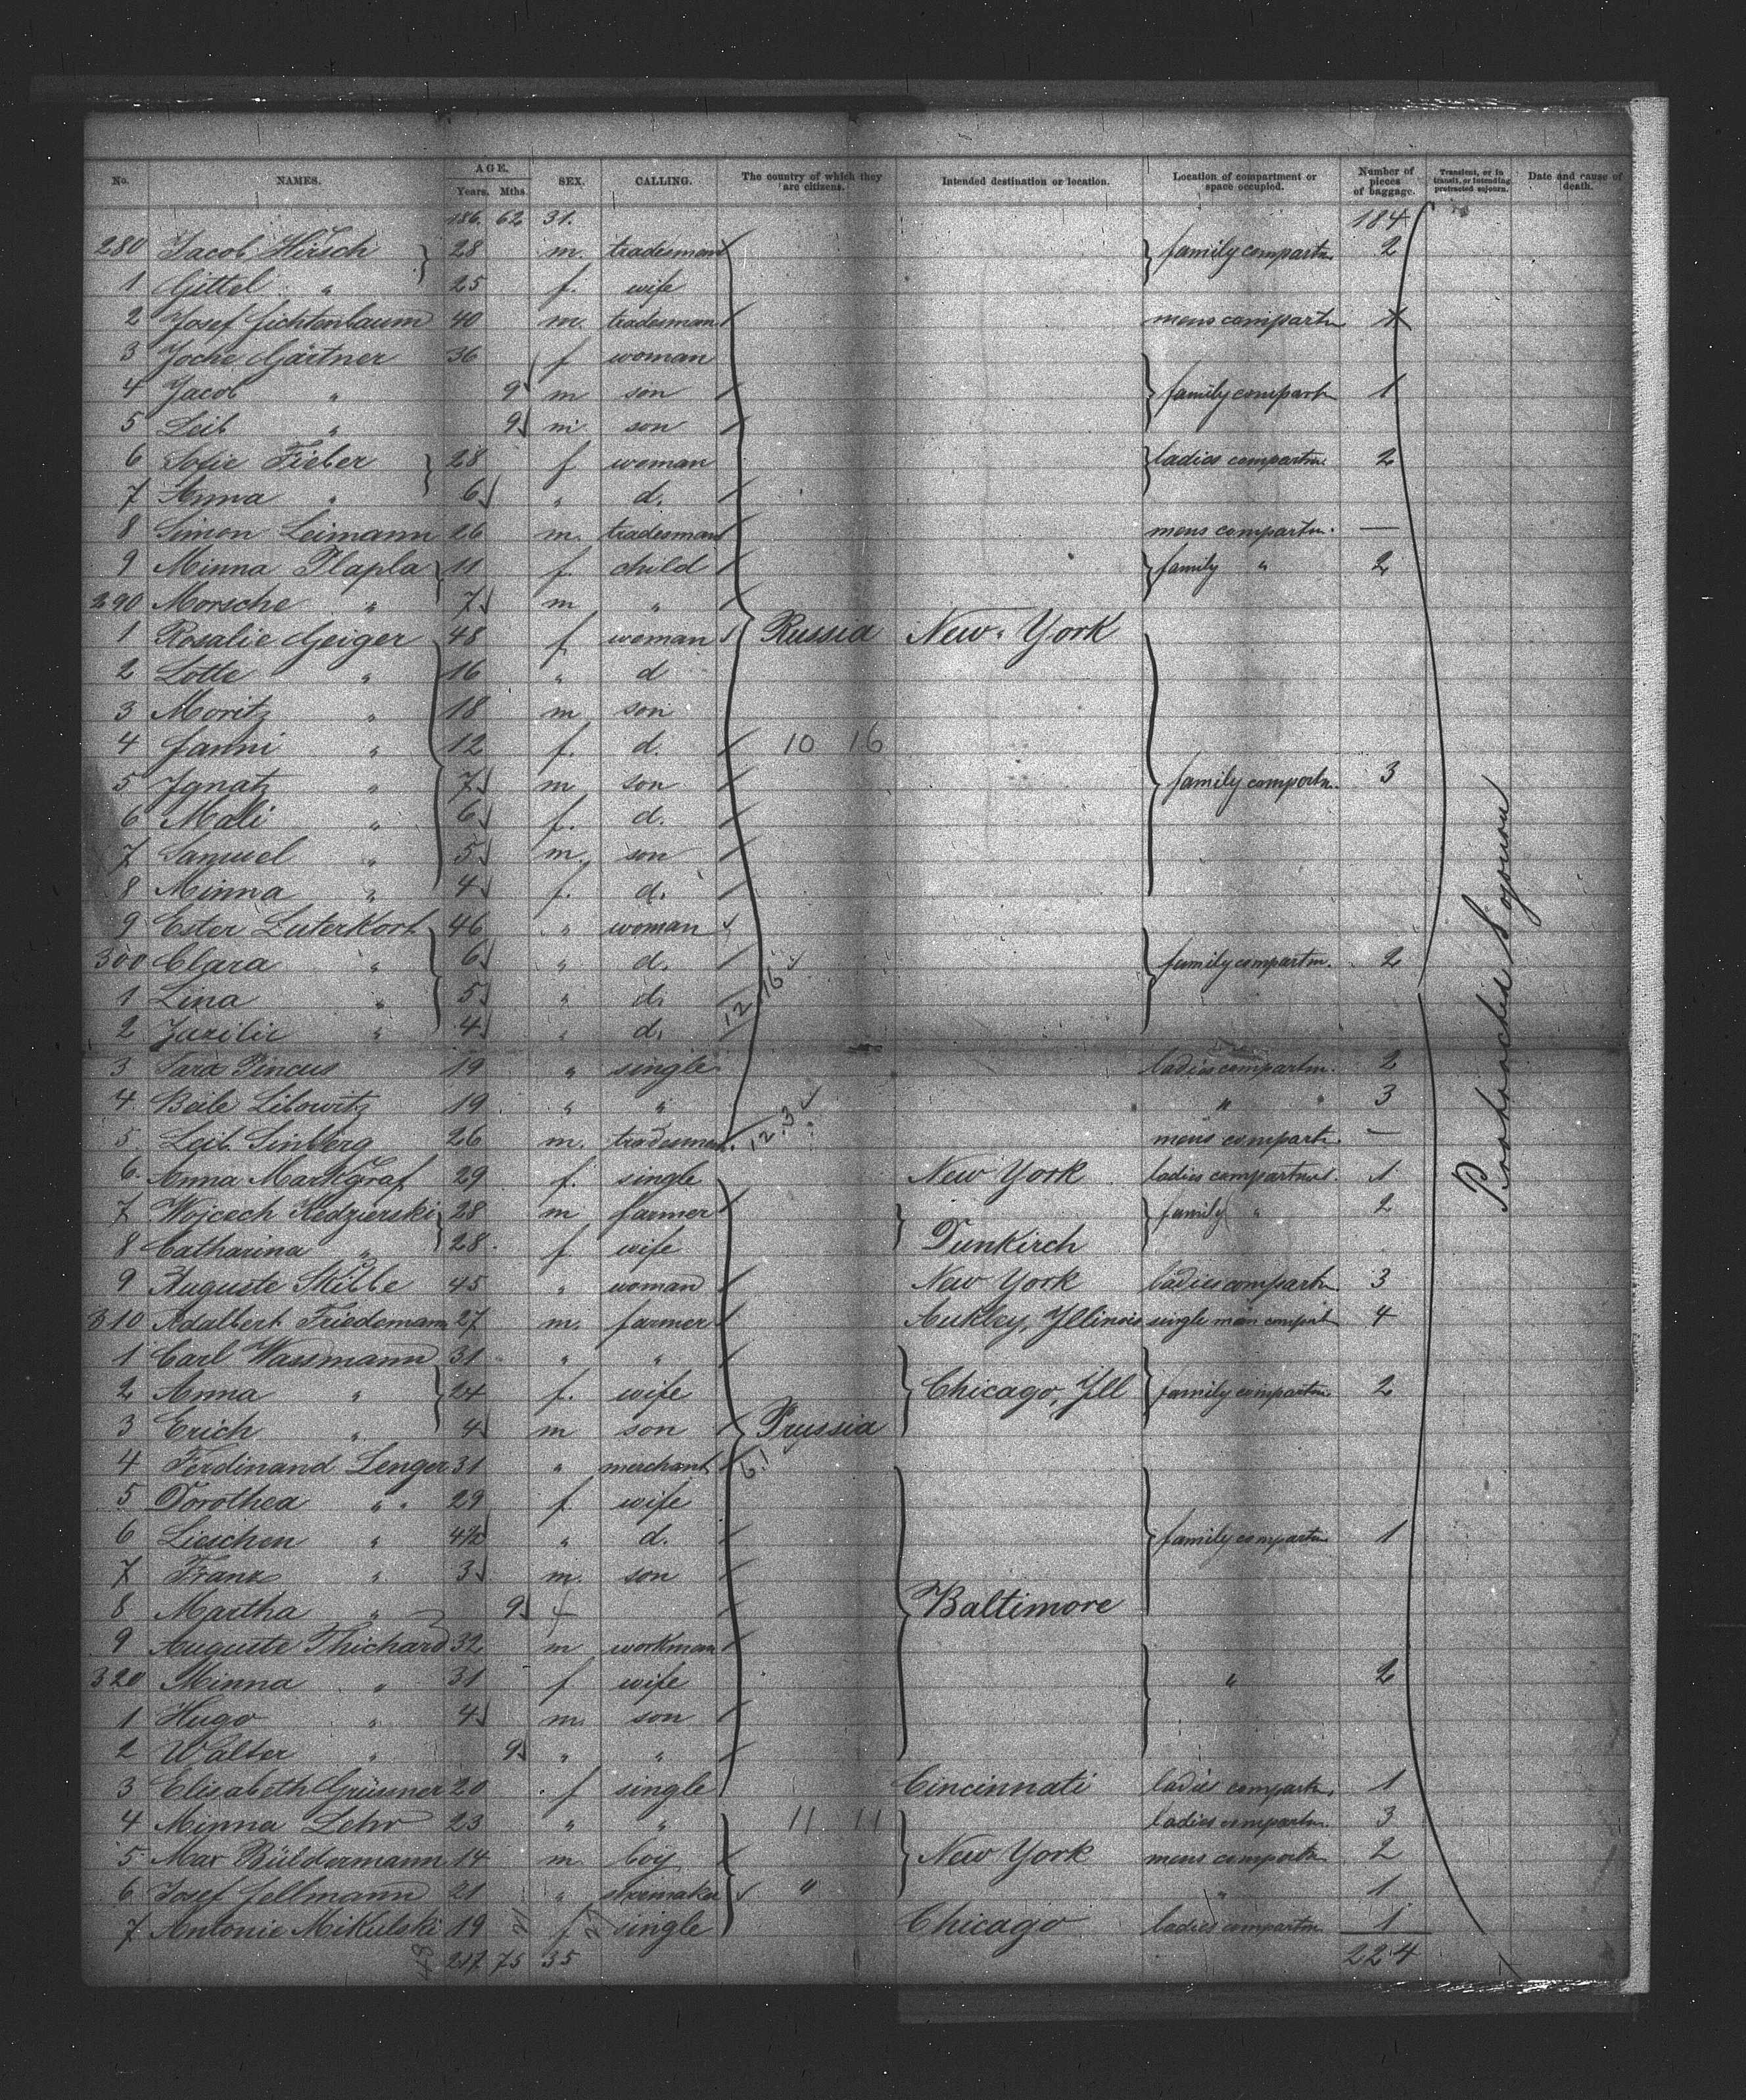 No. NAMES. AGE. Years. Mths. SEX. CALLING. The country of which they are citizens. Intended destination or location. Location of compartment or space occupied. Number of pieces of baggage. Transient, or in transit, or intending protracted sojourn. Date and cause of death.
186. 62 31. 184
280 Jacob Hirsch 28 m. tradesman family compartm. 2
1 Gittel " 25 f. wife
2 Josef Lichtenbaum 40 m. tradesman mens compartm 1
3 Joche Gärtner 36 f woman
4 Jacob " 9 m son family compartm 1
5 Leib " 9 m. son
6 Sofie Fieber 28 f woman ladies compartm 2
7 Anna " 6 " d.
8 Simon Leimann 26 m. tradesman mens compartm. —
9 Minna Plapla 11 f. child family " 2
290 Morsche " 7 m "
1 Rosalie Geiger 48 f woman Russia New-York
2 Lotte " 16 " d
3 Moritz " 18 m son
4 Fanni " 12 f. d. 10 16
5 Ignatz " 7 m son family compartm. 3
6 Mali " 6 f. d.
7 Samuel " 5 m. son
8 Minna " 4 f. d.
9 Ester Luterkort 46 " woman
300 Clara " 6 " d. family compartm. 2
1 Lina " 5 " d. 12 16
2 " 4 " d.
3 Sara Pincus 19 " single ladies compartm. 2
4 Beile Libowitz 19 " " " " 3
5 Leib Sinberg 26 m. tradesman 12.3 mens compartm. —
6 Anna Markgraf 29 f. single New York ladies compartment. 1
7 Wojcech Kedzierski 28 m farmer family " 2
8 Catharina " 28 f wife Dunkirch
9 Auguste Skibbe 45 " woman New York ladies compartm 3
310 Adalbert Friedemann 27 m. farmer Illinois single men compart 4
1 Carl Wassmann 31 " "
2 Anna " 24 f. wife Chicago, Ill family compartm 2
3 Erich " 4 m son Prussia
4 Ferdinand Lenger 31 " merchant 6.1
5 Dorothea " 29 f wife
6 Lieschen " 4½ " d. family compartm 1
7 Franz " 3 m. son
8 Martha " 9 f Baltimore
9 Auguste Thichard 32 m workman
320 Minna " 31 f wife " 2
1 Hugo " 4 m. son
2 Walter " 9 " "
3 Elisabeth Grüsmer 20 f single Cincinnati ladies compartm. 1
4 Minna Lehr 23 " " 11 11 ladies compartm. 3
5 Max Büldermann 14 m boy New York mens compartm 2
6 Josef Fellmann 21 " shoemaker " " 1
7 Antonie Mikulski 19 f single Chicago ladies compartm 1
217 75 35 224
Protracted Sojourn